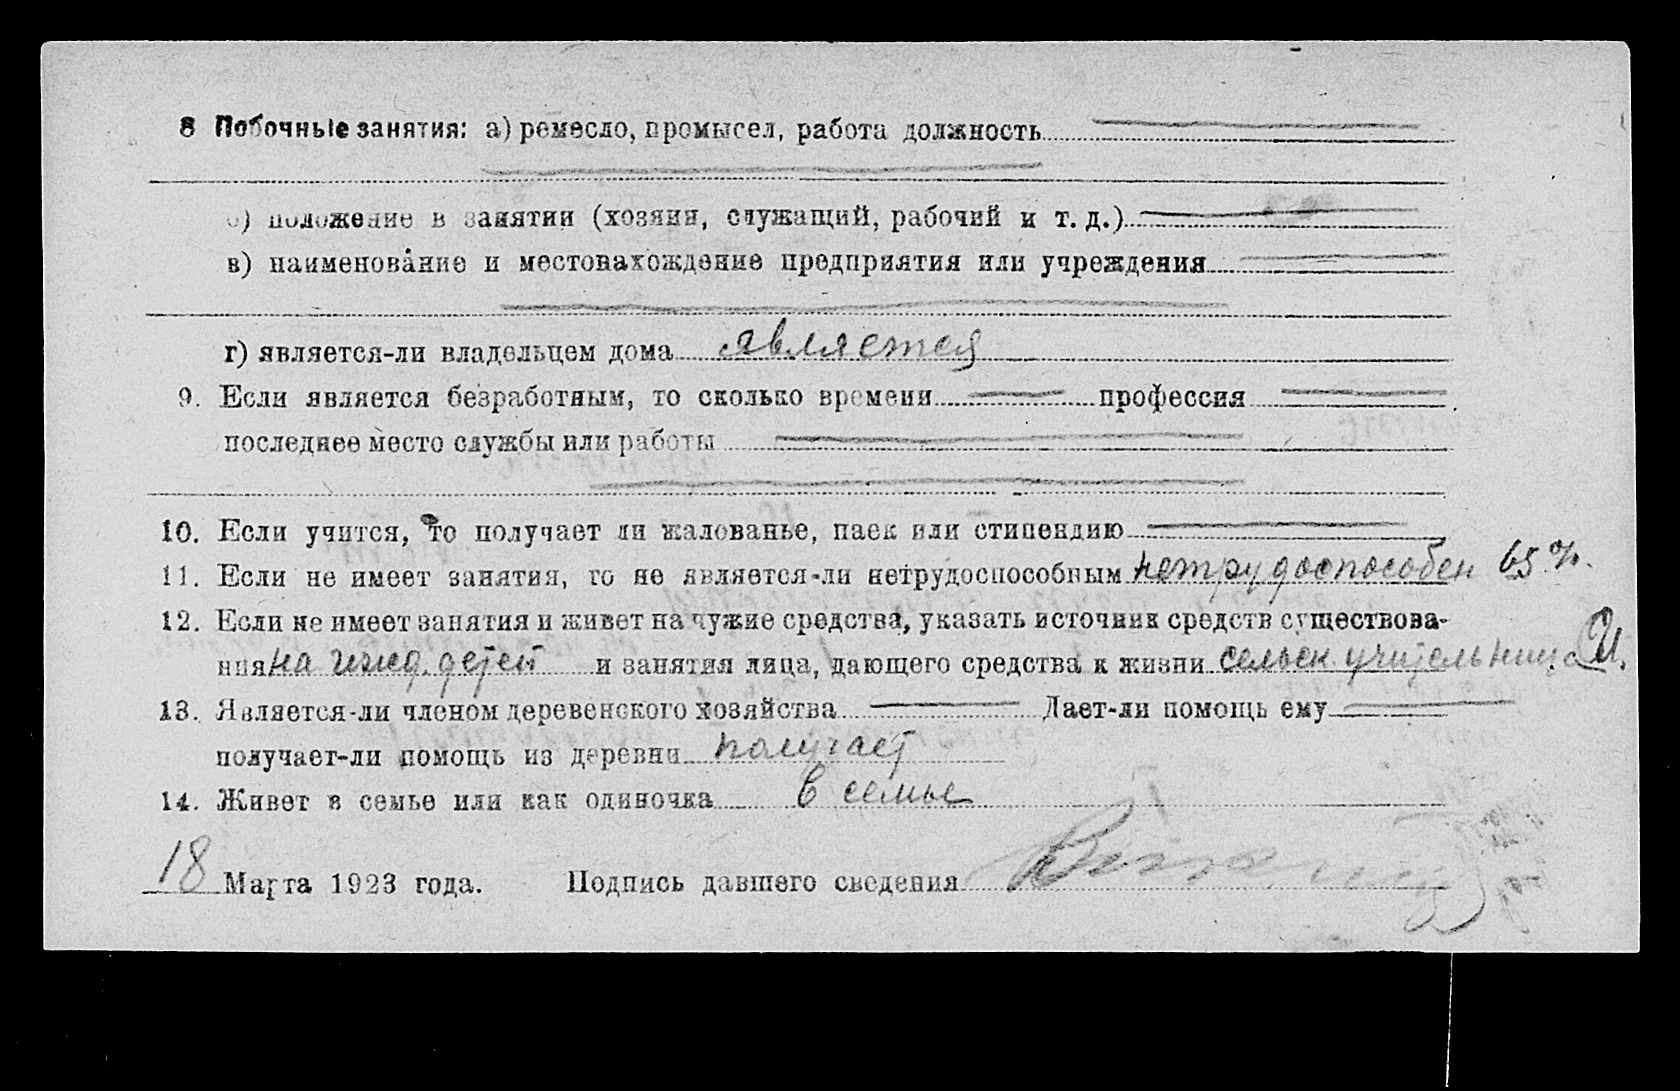 8 Побочные занятия: а) ремесло, промысел, работа должность
б) положение в занятии (хозяин, служащий, рабочий и т. д.)
в) наименование и местонахождение предприятия или учреждения
г) является-ли владельцем дома является
9. Если является безработным, то сколько времени профессия
последнее место службы или работы
10. Если учится, то получает ли жалованье, паек или стипендию
11. Если не имеет занятия, то не является-ли нетрудоспособным нетрудоспособен 65
12. Если не имеет занятия и живет на чужие средства, указать источник средств существова-
ния на ижд. детей и занятия лица, дающего средства к жизни сельск. учительница
13. Является-ли членом деревенского хозяйства Дает-ли помощь ему
получает-ли помощь из деревни получает
14. Живет в семье или как одиночка в семье
18 Марта 1923 года. Подпись давшего сведения